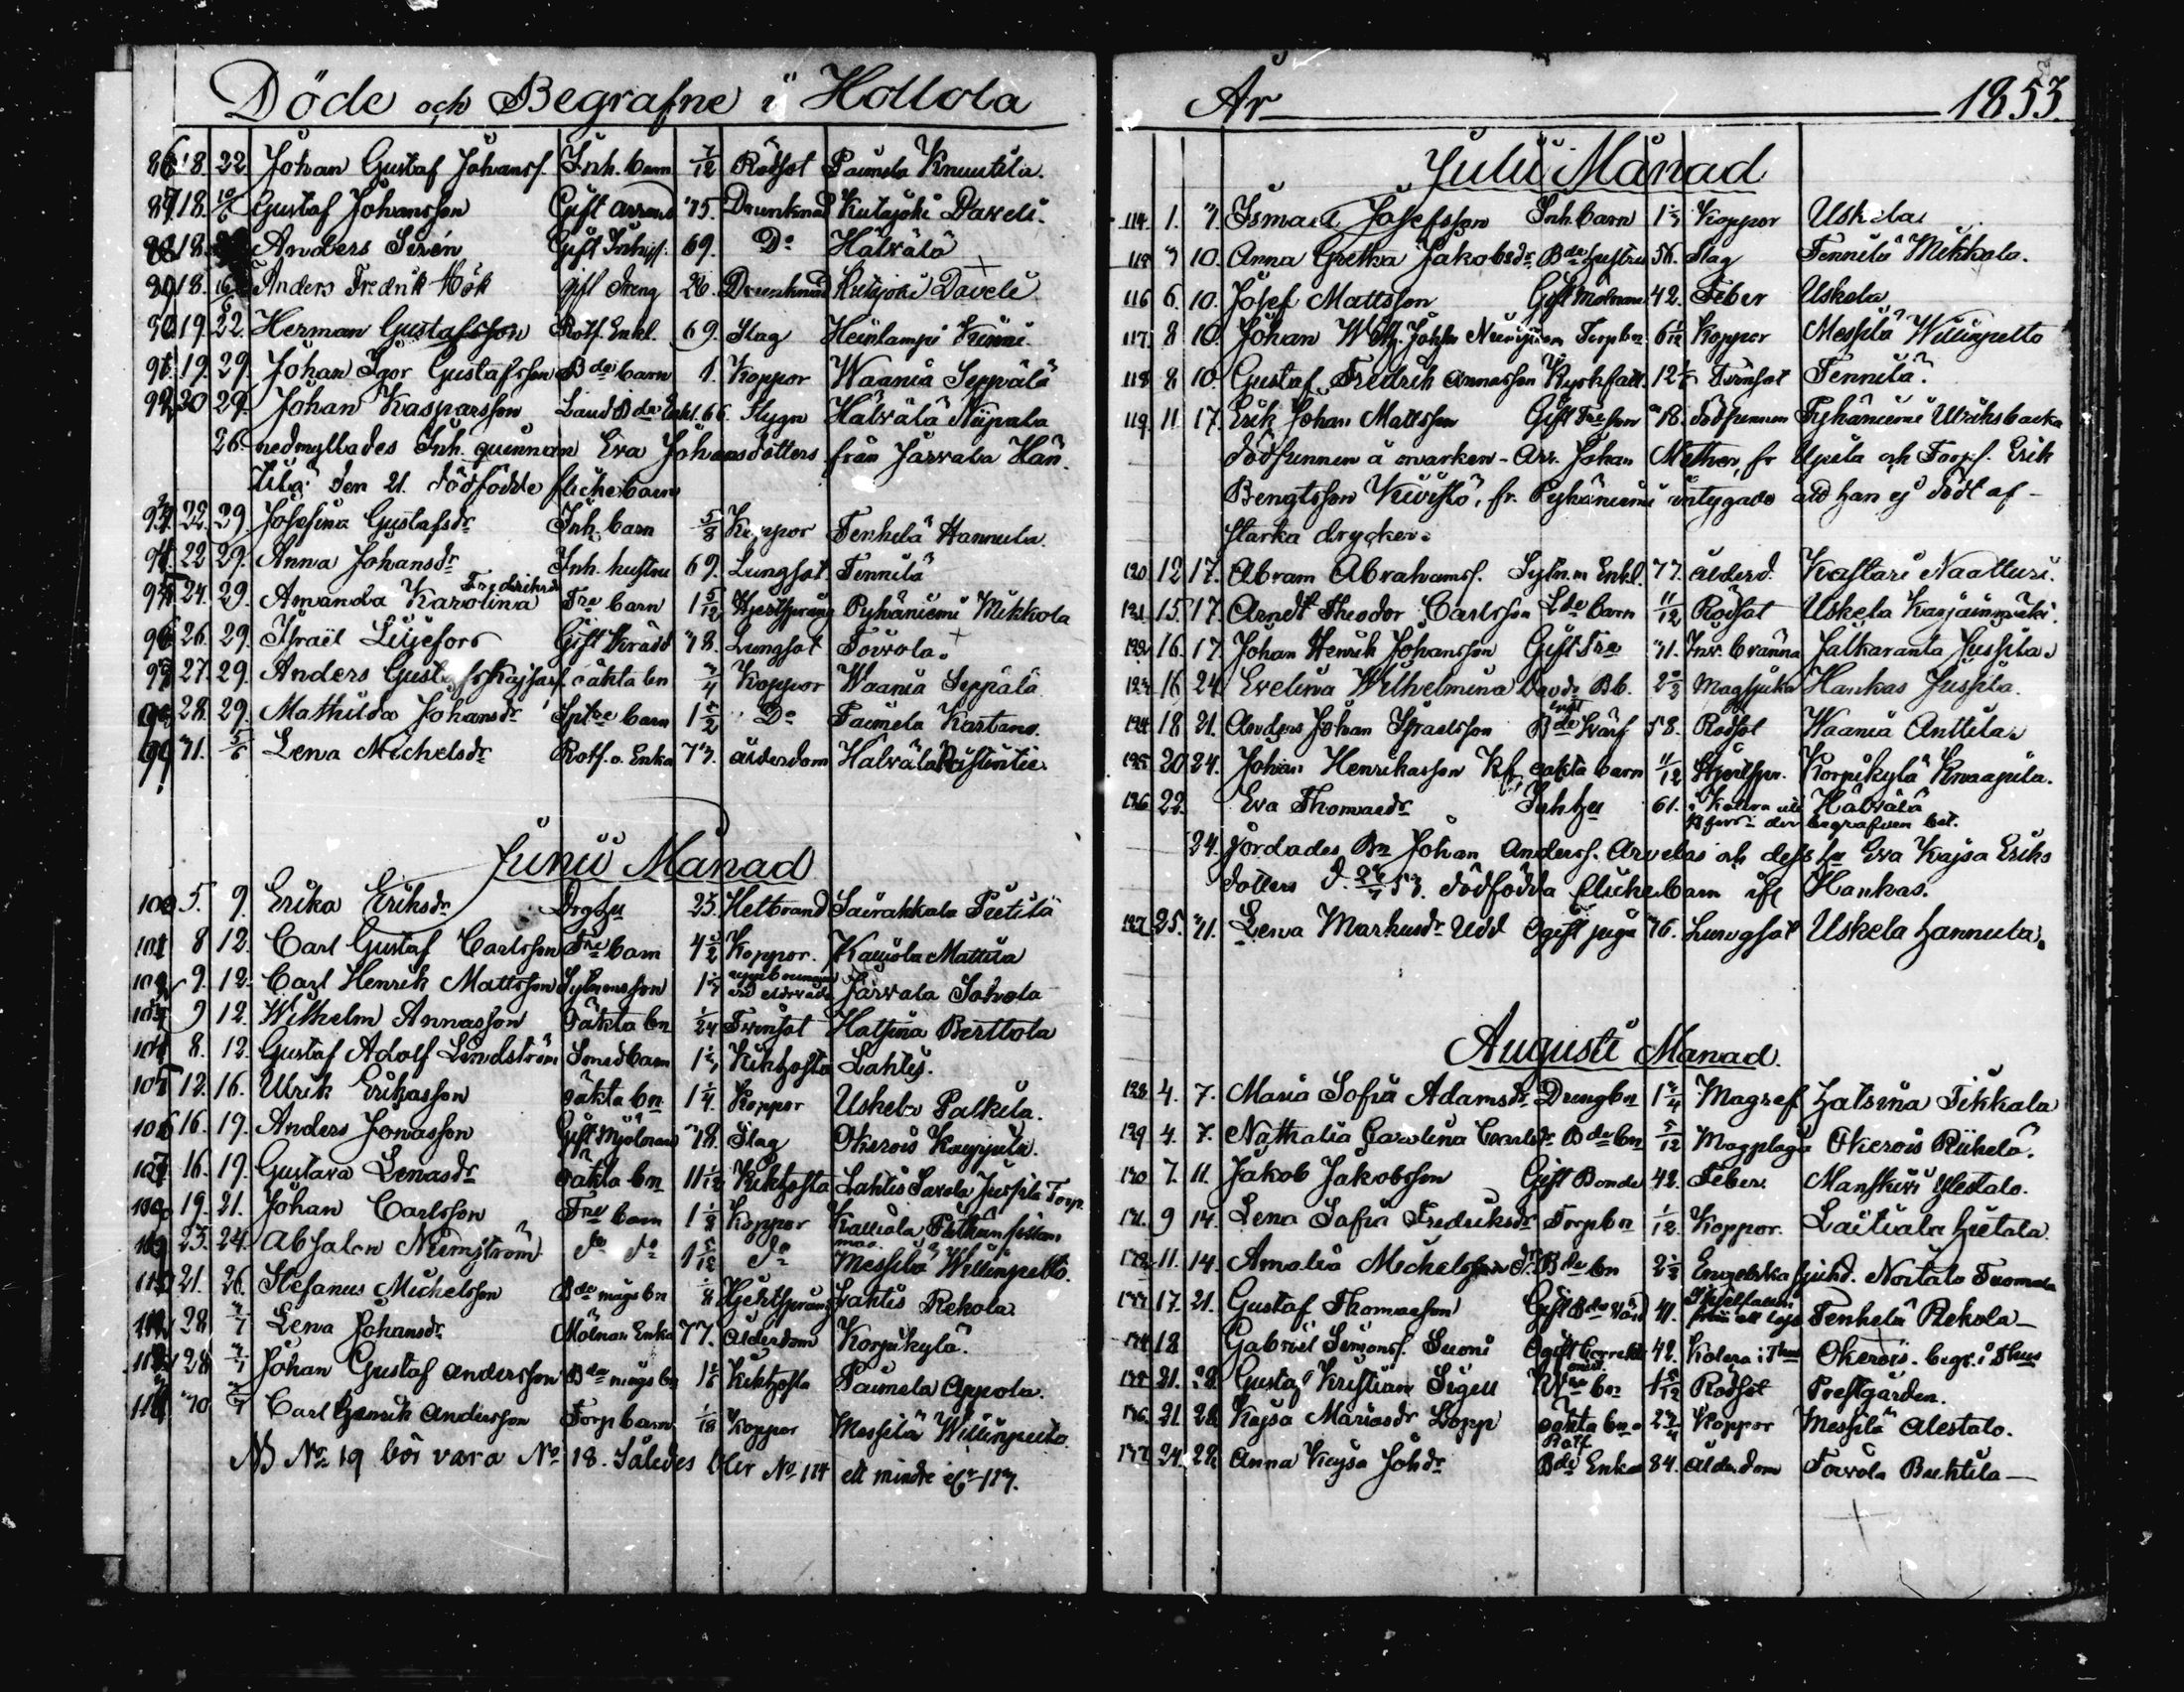 Döde och Begrafne i Hollola
86 18. 22 Johan Gustaf Johanss. Inh. barn 7/12 Rödsot Paimela Knuutila.
87 18. 10/6 Gustaf Johansson Gift arrend 75. Drunknad Kutajoki Daveli.
18. Anders Sirén Gift Inhys. 69. Do Hälvälä
18. Anders Fredrik Hök gift dreng 26. Drunknad Kutajoki Daveli
90 19. 22. Herman Gustafsson Rotf. Enkl. 69. Slag Heinlampi
91 19. 29. Johan Igor Gustafsson Bde barn 1. Koppor Waania Seppälä
92 20 29. Johan Kasparsson Land Bde Enkl. 66. Stygn Hälvälä Niipala
26. nedmyllades Inh. quinnan Eva Johansdotters från Järvala Han
tila den 21. dödfödde flickebarn
93 22. 29. Josefina Gustafsdr Inh. barn 5/8 Koppor Tenhelä Hannula.
94. 22 29. Anna Johansdr Inh. hustru 69. Lungsot Tennilä
95 24. 29. Amanda Karolina Fredriksdr Tre barn 1 5/12 Hjertsprång Pyhäniemi Mikkola
96 26. 29. Israël Liljefors Gift Skrädd 38. Lungsot Toivola.
97 27. 29. Anders Gustafs Kajsas. oäkta bn 3/4 Koppor Waania Seppälä
98 28. 29. Mathilda Johansdr barn 1 1/2 Do Paimela Kastano.
99 31. 5/6 Lena Michelsdr Rotf. o. Enka 73. ålderdom Hälvälä
Junii Månad
100 5. 9. Erika Eriksdr Drghu 23. Hetbrand Sairakkala Pietilä
101 8 12. Carl Gustaf Carlsson Tre barn 4 1/2 Koppor. Kalliola Mattila
102 9. 12. Carl Henrik Mattsson 1 1/3 Järvala Sokola
103 9 12. Wilhelm Annasson oäkta bn 1/24 Tvinsot Hatsina Berttola
104 8. 12. Gustaf Adolf Lindström Smedbarn Kikhosta Lahtis.
105 12. 16. Ulrik Erikasson oäkta bn 1 1/4. Koppor Uskela Palkila.
106 16. 19. Anders Jonasson Gift Mjölnare 38. Slag Okerois Kauppila.
107 16. 19. Gustava Lenasdr oäkta bn 11/12 Kikhosta Lahtis Savola Jussila Torp
108 19. 21. Johan Carlsson Tre barn 1 1/8 Koppor Kalliola
109 23. 24. Absalon Nümström do do 1 5/12 do Messilä Willinpelto.
110 21. 26. Stefanus Michelsson Bde mågs bn Hjertsprång Lahtis Rekola
111 28 3/7 Lena Johansdr Mölnar Enka 77. Ålderdom Korpikylä.
112 28 3/7 Johan Gustaf Andersson Bde mågs bn 1 1/6 Kikhosta Paimela Appola.
113 30 3/7 Carl Henrik Andersson Torp barn 1/18 Koppor Messilä Willinpelto.
NB No 19 bör vara No 18. Således blir No 114 ett mindre el. 113.
År 1853.
Julii Månad
114. 1. 3. Ismael Josefsson Inh. barn 1 1/3 Koppor Uskela
115 3 10. Anna Gretha Jakobsdr Bde hustru 56. Slag Tennilä Mikkola.
116 6. 10. Josef Mattsson Gift Mölnare 42. Feber Uskela
117. 8 10. Johan Wilh. Johss Torpbn 6/12 Koppor Messilä Willinpelto
118 8 10. Gustaf Fredrik Annasson 12 Tvinsot Tennilä.
119. 11. 17. Erik Johan Mattsson Gift 18. dödfunnen Pyhäniemi Ulriksbacka
dödfunnen å marken - Arr. Johan Mether, fr Upila och Torpf. Erik
Bengtsson Kivistö, fr. Pyhäniemi intygade att han ej dödt af
starka drycker.
120 12 17. Abram Abrahamss. Enkl. 77. ålderd. Kastari Naatturi.
121 15 17. Arndt Theodor Carlsson barn 11/12 Rödsot Uskela
122 16. 17. Johan Henrik Johansson Gift Tre 31. Inv. bränna Jalkaranta Jussila
123 16 24. Evelina Wilhelmina Davdr Bb. 2 2/3 Magsjuka Hankas Jussila.
124 18 21. Anders Johan Israelsson 58. Rödsot Waania Anttila.
125 20 24. Johan Henrikasson oäkta barn 11/12 Hjertspr. Korpikylä Knaapila.
126 22. Eva Thomasdr Inh hu 61. Hälvälä
24. Jordades Bn Johan Anderss. Arvelas och dess hu Eva Kajsa Eriks
dotters d. 53. dödfödda flickebarn ifr Hankas.
127 25. 31. Lena Markusdr Udd Ogift piga 36. Lungsot Uskela Hannula.
Augusti Månad.
128 4. 7. Maria Sofia Adamsdr Drengbn 1 3/4 Magref. Hatsina Tikkala
129 4. 7. Nathalia Carolina Carlsdr Bde bn 5/12 Magplåga Okerois Riihelä.
130 7. 11. Jakob Jakobsson Gift Bonde 42. Feber. Manskivi Ylestalo.
131. 9 14. Lena Sofia Fredriksdr Torpbn 1/12. Koppor. Laitiala Hietala.
132 11. 14. Amalia Michelsdr Bde bn 2 Engelska sjukd. Noitala Tuomala
133 17. 21. Gustaf Thomasson Gift Bde 41. Tenhelä Rekola
134 18 Gabriel Simonss. Suoni Ogift 42. Kolera i Okerois. begr. i
135 21. 28. Gustaf Kristian Sigell bn 1 5/12 Rödsot Prestgården.
136. 21. 28 Kajsa Mariasdr Lopp oäkta bn 2 3/4 Koppor Messilä Alestalo.
137 24. 28. Anna Kajsa Johdr Rotf Bde Enka 84. Ålderdom Toivola Buktila